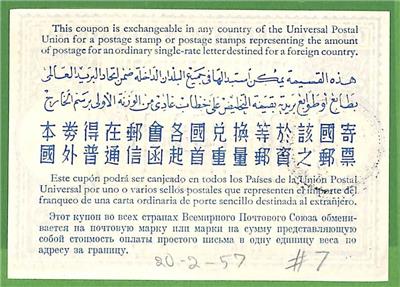 This coupon is exchangeable in any country of the Universal Postal
Union for a postage stamp or postage stamps representing the amount
of postage for an ordinary single-rate letter destined for a foreign country.
هذه القسيمة يمكن استبدالها في جميع البلدان الداخلة ضمن اتحاد البريد العالمى
بطابع أو طوابع بريدية بقيمة التخليص على خطاب عادى من الوزنة الأولى برسم الخارج
本券得在郵會各國兌換等於該國寄
國外普通信函起首重量郵資之郵票
Este cupón podrá ser canjeado en todos los Países de la Unión Postal
Universal por uno o varios sellos postales que representen el importe del
franqueo de una carta ordinaria de porte sencillo destinada al extranjero.
Этот купон во всех странах Всемирного Почтового Союза обмени-
вается на почтовую марку или марки на сумму представляющую
собой стоимость оплаты простого письма в одну единицу веса по
адресу за границу.
20-2-57 #7